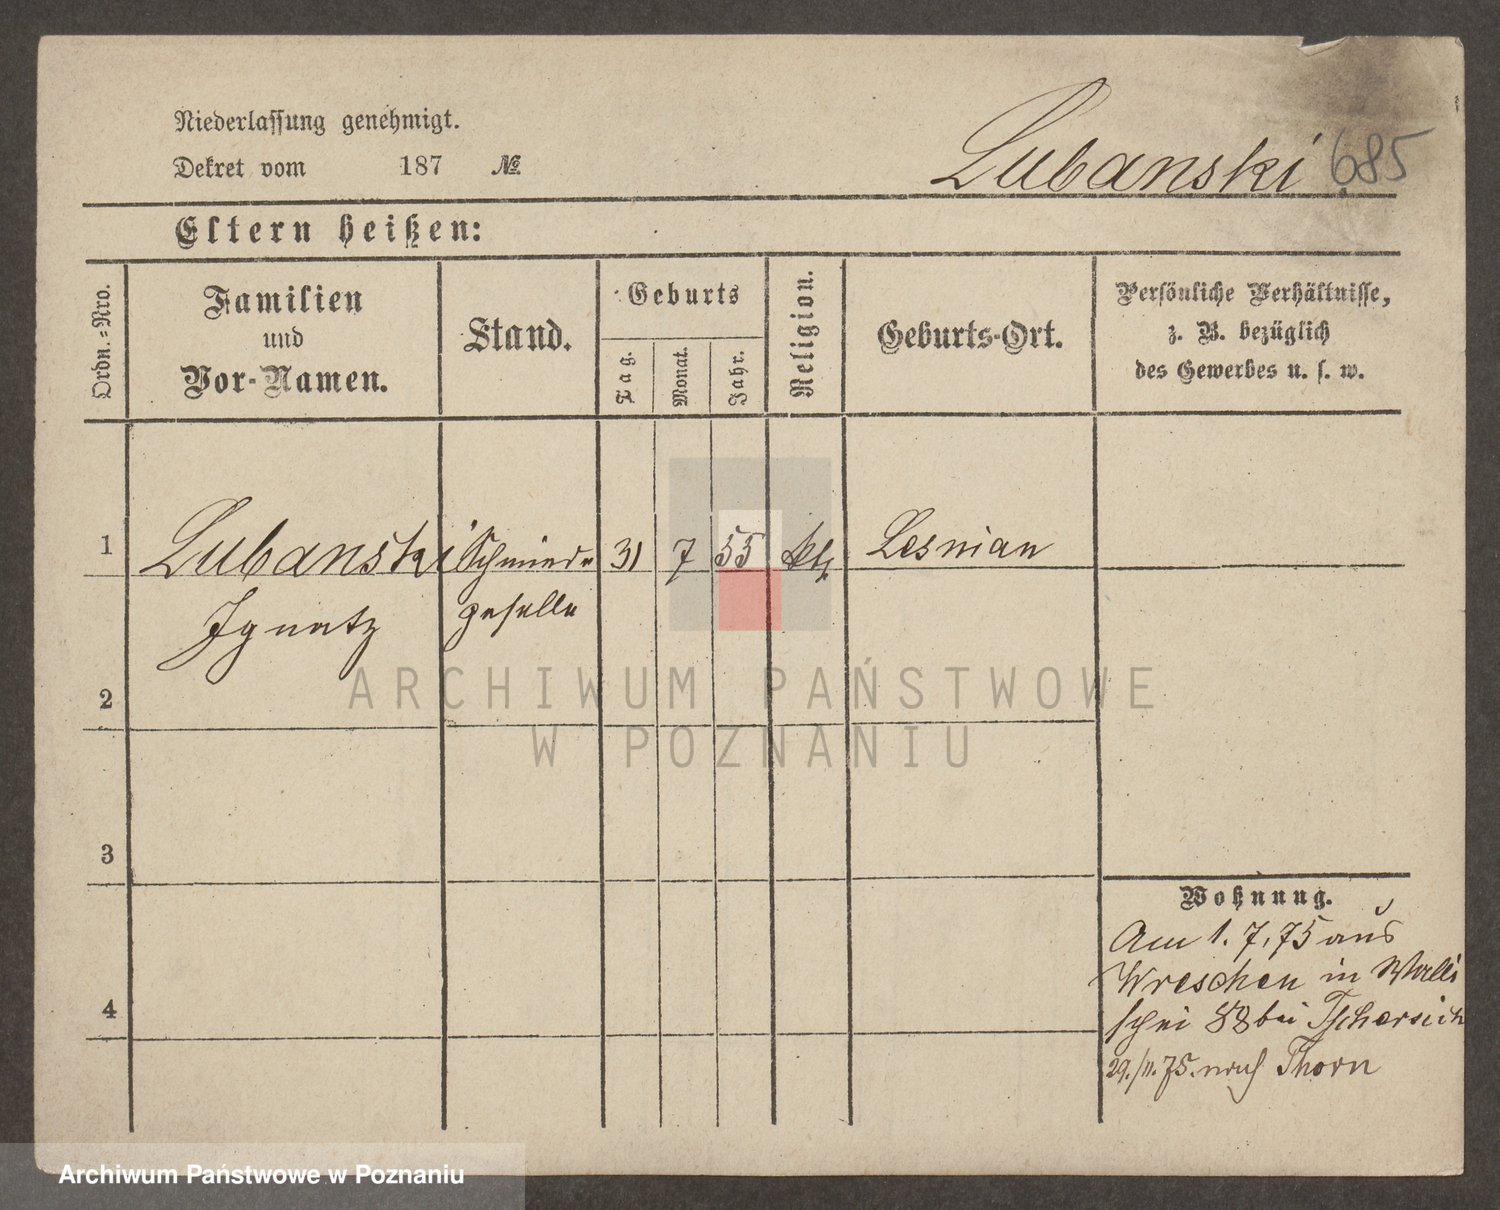 Niederlassung genehmigt.
Dekret vom 187 №
Lubanski 685
Eltern heißen:
Ordn.=Nro.
Familien
und
Vor-Namen.
Stand.
Geburts
Tag.
Monat.
Jahr.
Religion.
Geburts-Ort.
Persönliche Verhältnisse,
z. B. bezüglich
des Gewerbes u. s. w.
1 Lubanski Schmiede 31 7 55 kth Lesnian
Ignatz geselle
2
3
4
Wohnung.
Am 1. 7. 75 aus
Wreschen in Walli
schei 88 bei Tschersich
29./11. 75. nach Thorn
ARCHIWUM PAŃSTWOWE
W POZNANIU
Archiwum Państwowe w Poznaniu